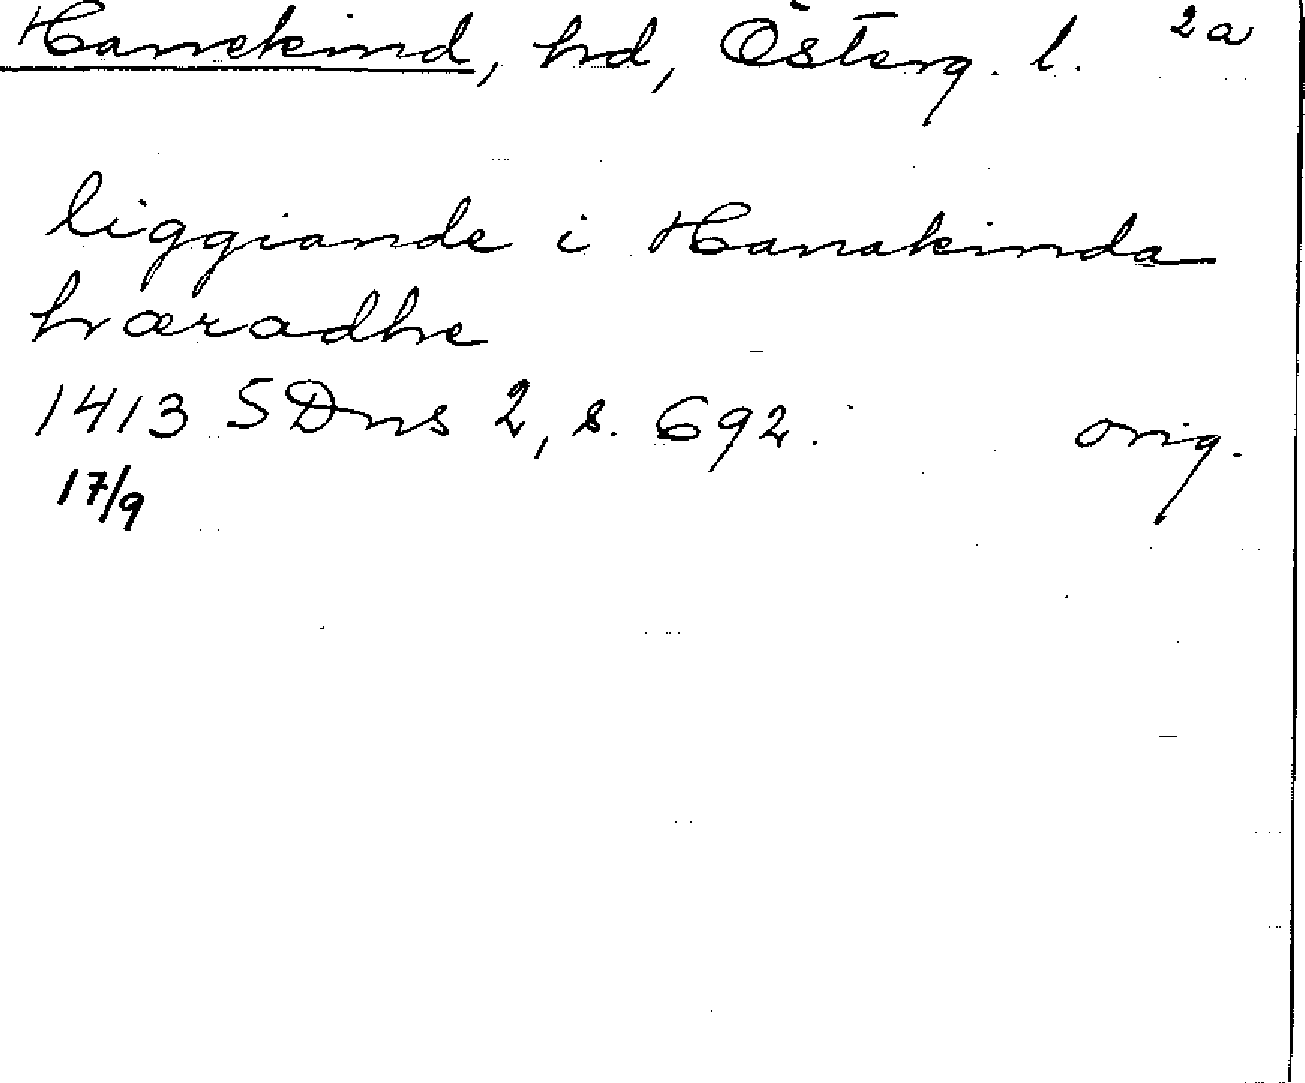 Hanekind, hd, Österg. l. 2a
liggiande i Hanakinda
hæradhe
1413 SDns 2, s. 692. orig.
17/9